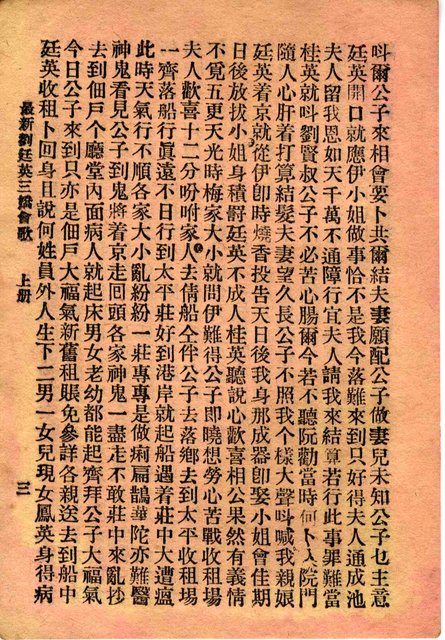 呌爾公子來相會要卜共爾結夫妻願配公子做妻兒未知公子乜主意
廷英開口就應伊小姐做事恰不是我今落難來到只好得夫人通成池
夫人留我恩如天千萬不通障行宜夫人請我來結算若行此事罪難當
桂英就呌劉賢叔公子不必苦心腸爾今若不聽阮勸當時何卜入院門
隨人心肝着打算結髮夫妻望久長公子不照我个樣大聲呌喊我親娘
廷英着京就從伊卽時燒香投告天日後我身那成器卽娶小姐會佳期
日後放拔小姐身積尉廷英不成人桂英聽說心歡喜相公果然有義情
不覓五更天光時梅家大小就問伊難得公子卽曉想勞心苦戰收租場
夫人歡喜十二分吩咐家人去倩船仝伴公子去落鄉去到太平收租場
一齊落船行眞遠不日行到太平莊好到港岸就起船遇着莊中大遭瘟
此時天氣行不順各家大小亂紛紛一莊專專是做痢扁鵲華陀亦難醫
神鬼看見公子到鬼將着京走回頭各家神鬼一盡走不敢莊中來亂抄
去到佃戶个廳堂內面病人就起床男女老幼都能起齊拜公子大福氣
今日公子來到只亦是佃戶大福氣新舊租賬免參詳各親送去到船中
廷英收租卜回身且說何姓員外人生下二男一女兒現女鳳英身得病
最新劉廷英三嬌會歌　上册　三